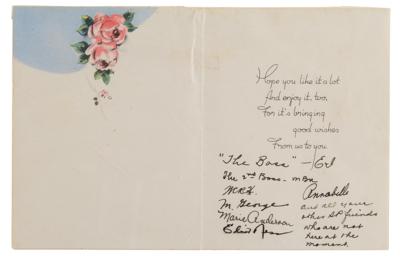 Hope you like it a lot
And enjoy it, too,
For it's bringing
good wishes
From us to you.
"The Boss" - Erl
The 2nd Boss -
M. George
Marie Anderson
Eliot Ness
Annabelle
and all your
other SP friends
who are not
here at the
moment.